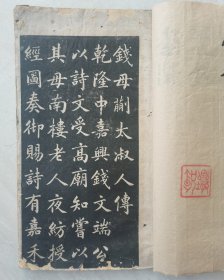 錢母蒯太淑人傳
乾隆中嘉興錢文端公
以詩文受高廟知嘗以
其母南樓老人夜紡授
經圖奏御賜詩有嘉禾